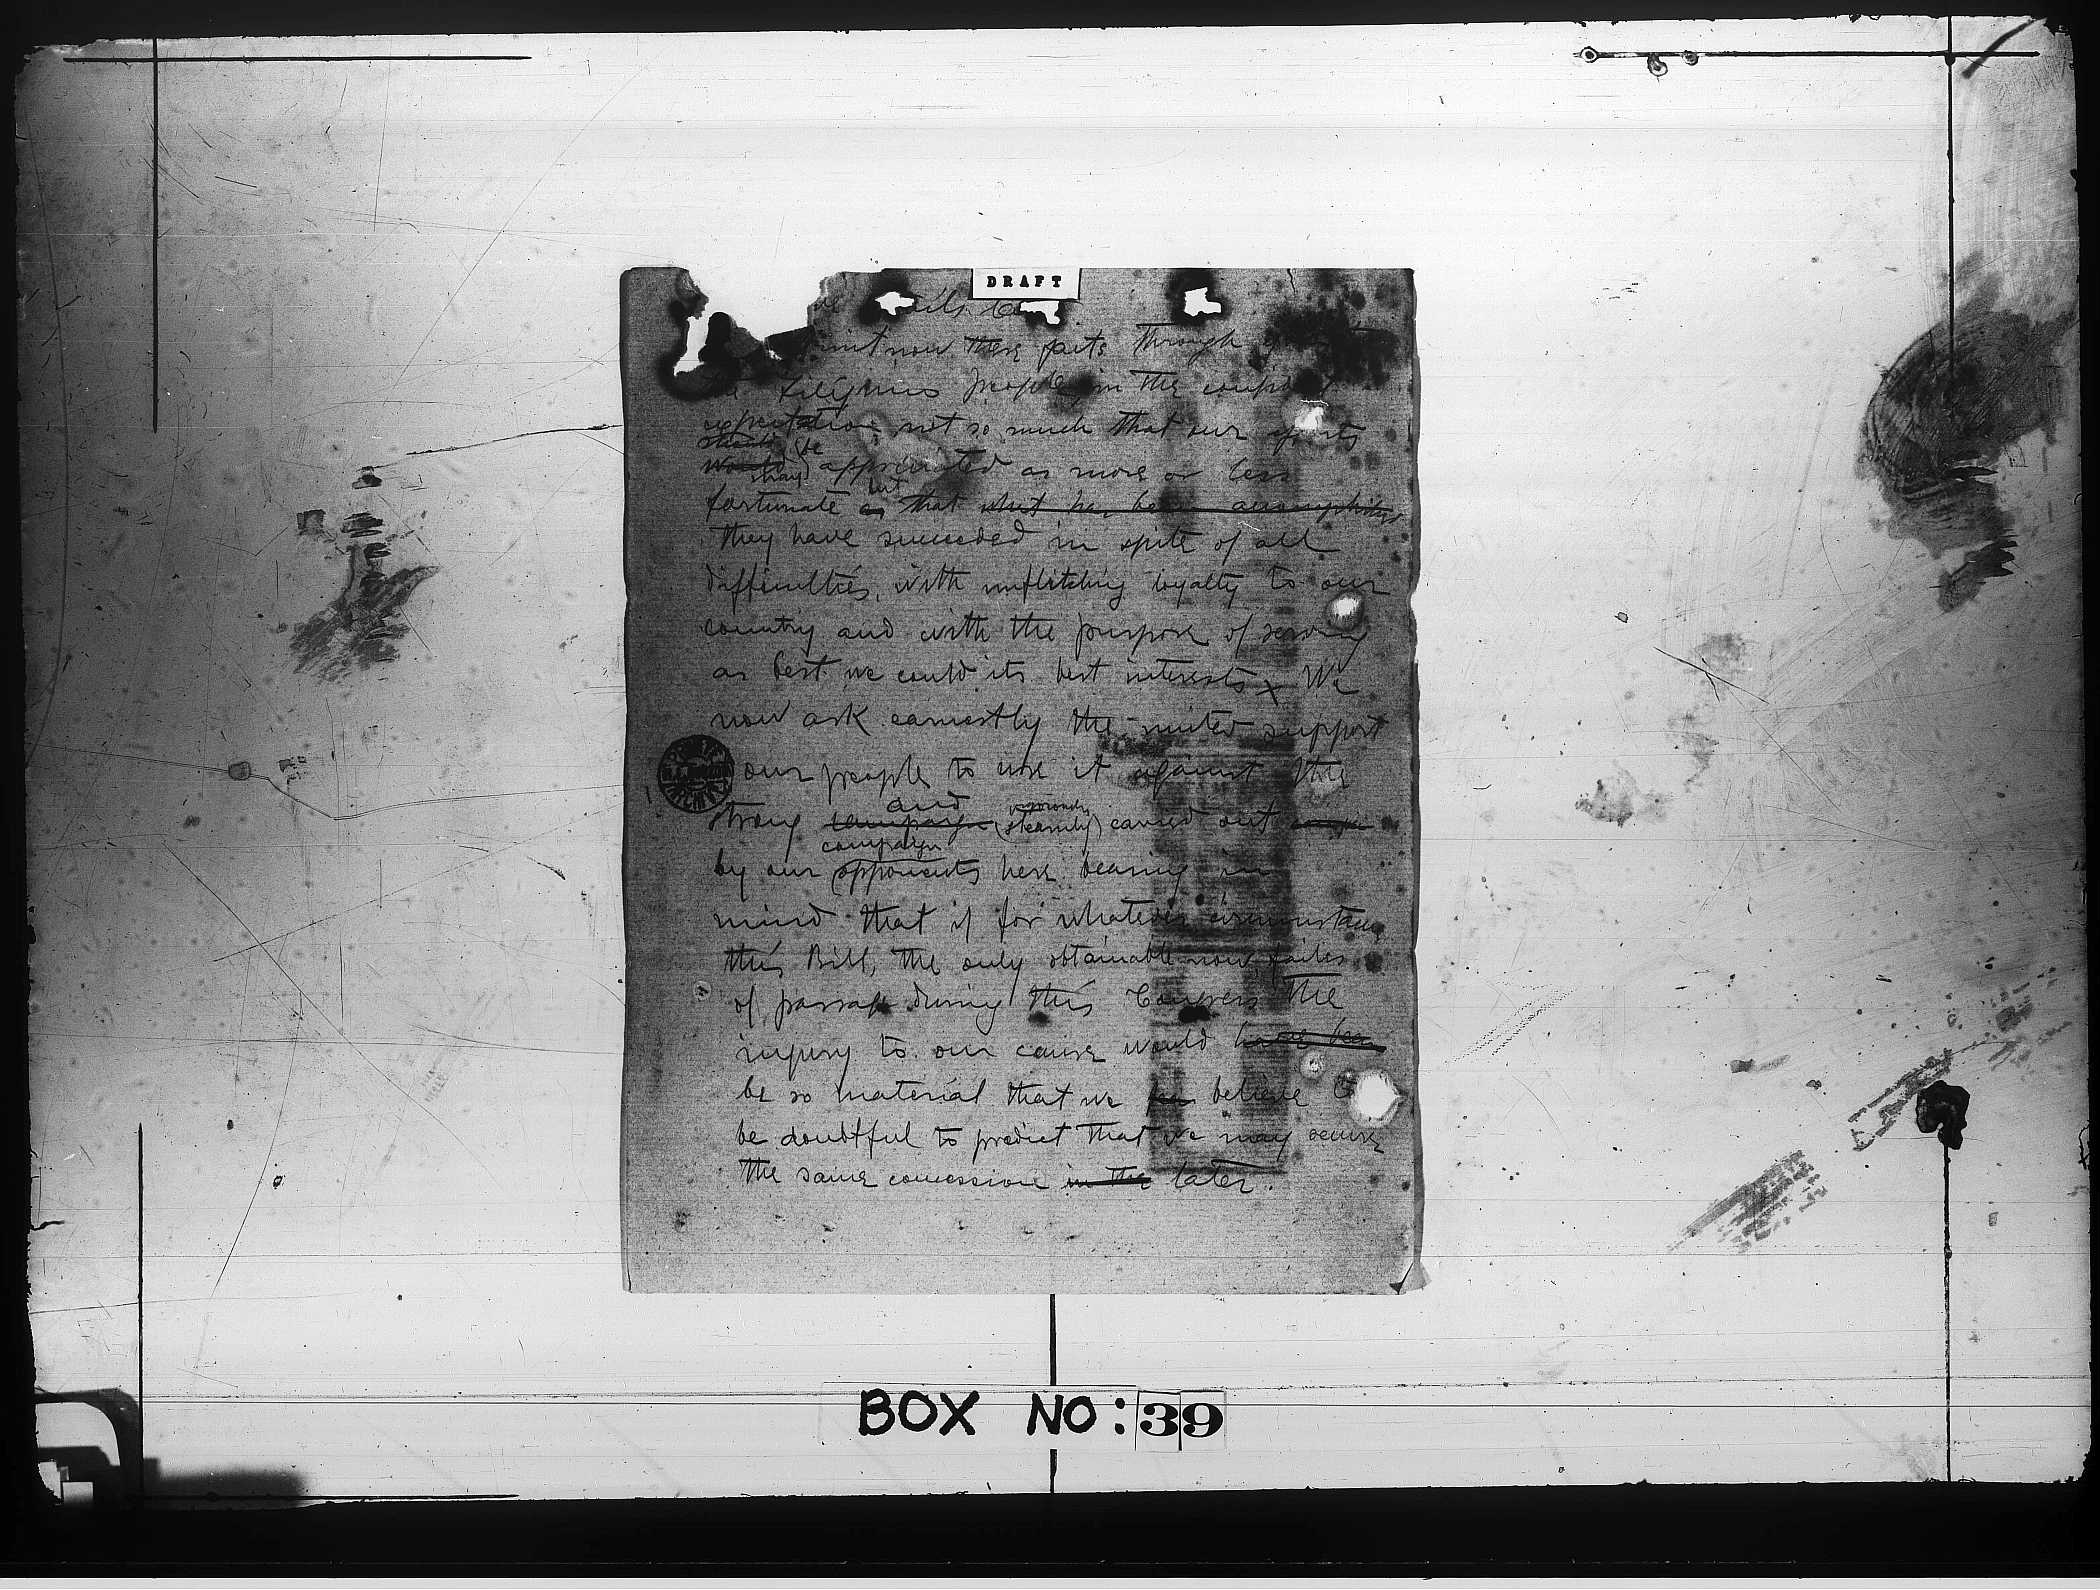 DRAFT
now these facts through
Filipinos people, in the
expectation not so much that our efforts
should be
would appreciated as more or less
may but
fortunate as that what has been accomplished
they have succeeded in spite of all
difficulties, with unflitching loyalty to our
country and with the purpose of serving
as best we could its best interests x We
now ask earnestly the united support
our people to use it against the
and
strong campaign steamily) carried out
campaign
by our opponents here bearing in
mind that if for whatever circumstance
this Bill, the only obtainable now, failes
of passage during this Congress the
injury to our cause would have been
be so material that we believe to
be doubtful to predict that we may secure
the same concessions in the later.
BOX NO: 39